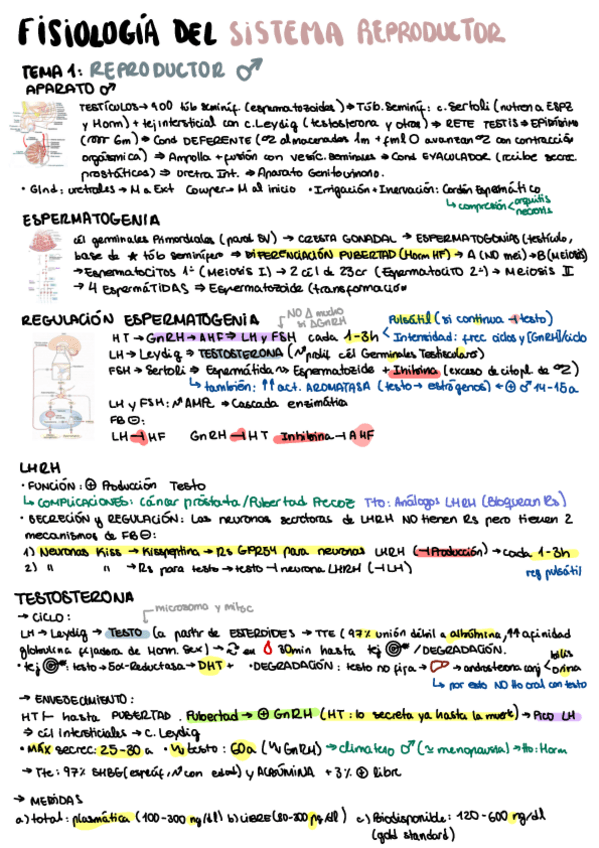 FISIOLOGÍA DEL SISTEMA REPRODUCTOR
TEMA 1: REPRODUCTOR ♂
APARATO ♂
TESTÍCULOS → 900 túb seminíf. (espermatozoides) → Túb. Seminíf: c. Sertoli (nutren a ESPZ
y Horm) + tej intersticial con c. Leydig (testosterona y otros) → RETE TESTIS → EPIDÍDIMO
6m) → Cond DEFERENTE (♂ almacenados 1m + fml O avanzan ♂ con contracción
orgásmica) → Ampolla + fusión con vesíc. seminales → Cond EYACULADOR (recibe secrec.
prostáticas) → uretra Int. → Aparato Genitourinario.
• Glnd: uretrales → M a Ext Cowper → M al inicio • Irrigación + Inervación: Cordón Espermático
↳ compresión < orquitis
necrosis
ESPERMATOGENIA
cél germinales Primordiales (pared SV) → CRESTA GONADAL → ESPERMATOGONIAS (testículo,
base de ★ túb seminífero → DIFERENCIACIÓN PUBERTAD (Horm HF) → A (NO mei) → B (MEIOSIS)
→ Espermatocitos 1º (Meiosis I) → 2 cél de 23cr (Espermatocito 2º) → Meiosis II
→ 4 ESPERMÁTIDAS → Espermatozoide (transformación
REGULACIÓN ESPERMATOGENIA
NO Δ mucho
si ΔGnRH
Pulsátil (si continua ⊣ testo)
HT → GnRH → AHF → LH y FSH cada 1-3h < Intensidad: frec ciclos y [GnRH]/ciclo
LH → Leydig → TESTOSTERONA (↗ prolif cél Germinales Testiculares)
FSH → Sertoli → Espermátida → Espermatozoide + Inhibina (exceso de citopl de ♂)
↳ también: ↑↑ act. AROMATASA (testo → estrógenos) ← ⊕ ♂ 14-15a
LH y FSH: ↗ AMPc → Cascada enzimática
FB ⊖:
LH ⊣ HF GnRH ⊣ HT Inhibina ⊣ AHF
LHRH
• FUNCIÓN: ⊕ Producción Testo
↳ COMPLICACIONES: cáncer próstata/Pubertad Precoz Tto: Análogos LHRH (Bloquean Rs)
• SECRECIÓN y REGULACIÓN: Las neuronas secretoras de LHRH NO tienen Rs pero tienen 2
mecanismos de FB⊖:
1) Neuronas Kiss → Kisspeptina → Rs GPR54 para neuronas LHRH (⊣ Producción) → cada 1-3h
2) " " → Rs para testo → testo ⊣ neurona LHRH (⊣ LH)
reg pulsátil
TESTOSTERONA
microsoma y mitoc
→ CICLO:
LH → Leydig → TESTO (a partir de ESTEROIDES → TTE (97% unión débil a albúmina, ↑↑ afinidad
globulina fijadora de Horm. Sex) → en 30min hasta tej /DEGRADACIÓN.
• tej: testo → 5α-Reductasa → DHT + • DEGRADACIÓN: testo no fija → androsterona conj < bilis
orina
↳ por esto NO tto oral con testo
→ ENVEJECIMIENTO:
HT ⊢ hasta PUBERTAD. Pubertad → ⊕ GnRH (HT: lo secreta ya hasta la muert) → Pico LH
→ cél intersticiales → c. Leydig
• MÁX secrec: 25-30 a • testo: 60a (GnRH) → climaterio ♂ (≈ menopausia) → tto: Horm
→ Tte: 97% SHBG (específ, ↗ con edad) y ALBÚMINA + 3% ⊕ libre
→ MEDIDAS
a) total: plasmática (100-300 ng/dl) b) LIBRE (50-200 pg/dl) c) Biodisponible: 120-600 ng/dl
(gold standard)